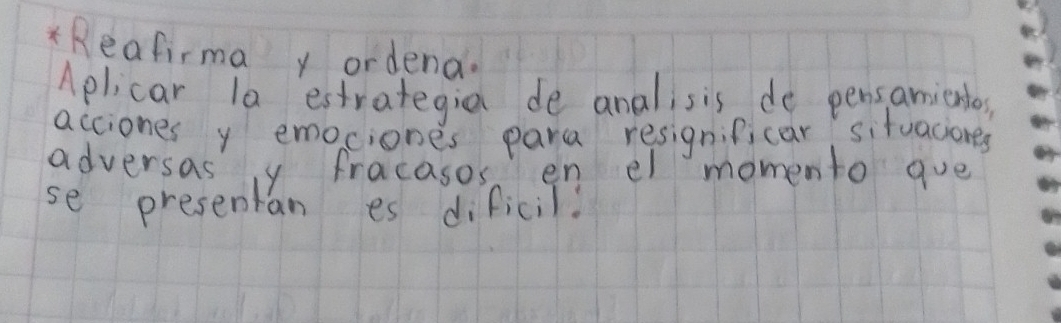 *Reafirma y ordena.
Aplicar la estrategia de analisis de pensamientos,
acciones y emociones para resignificar situaciones
adversas y fracasos en el momento que
se presentan es dificil.